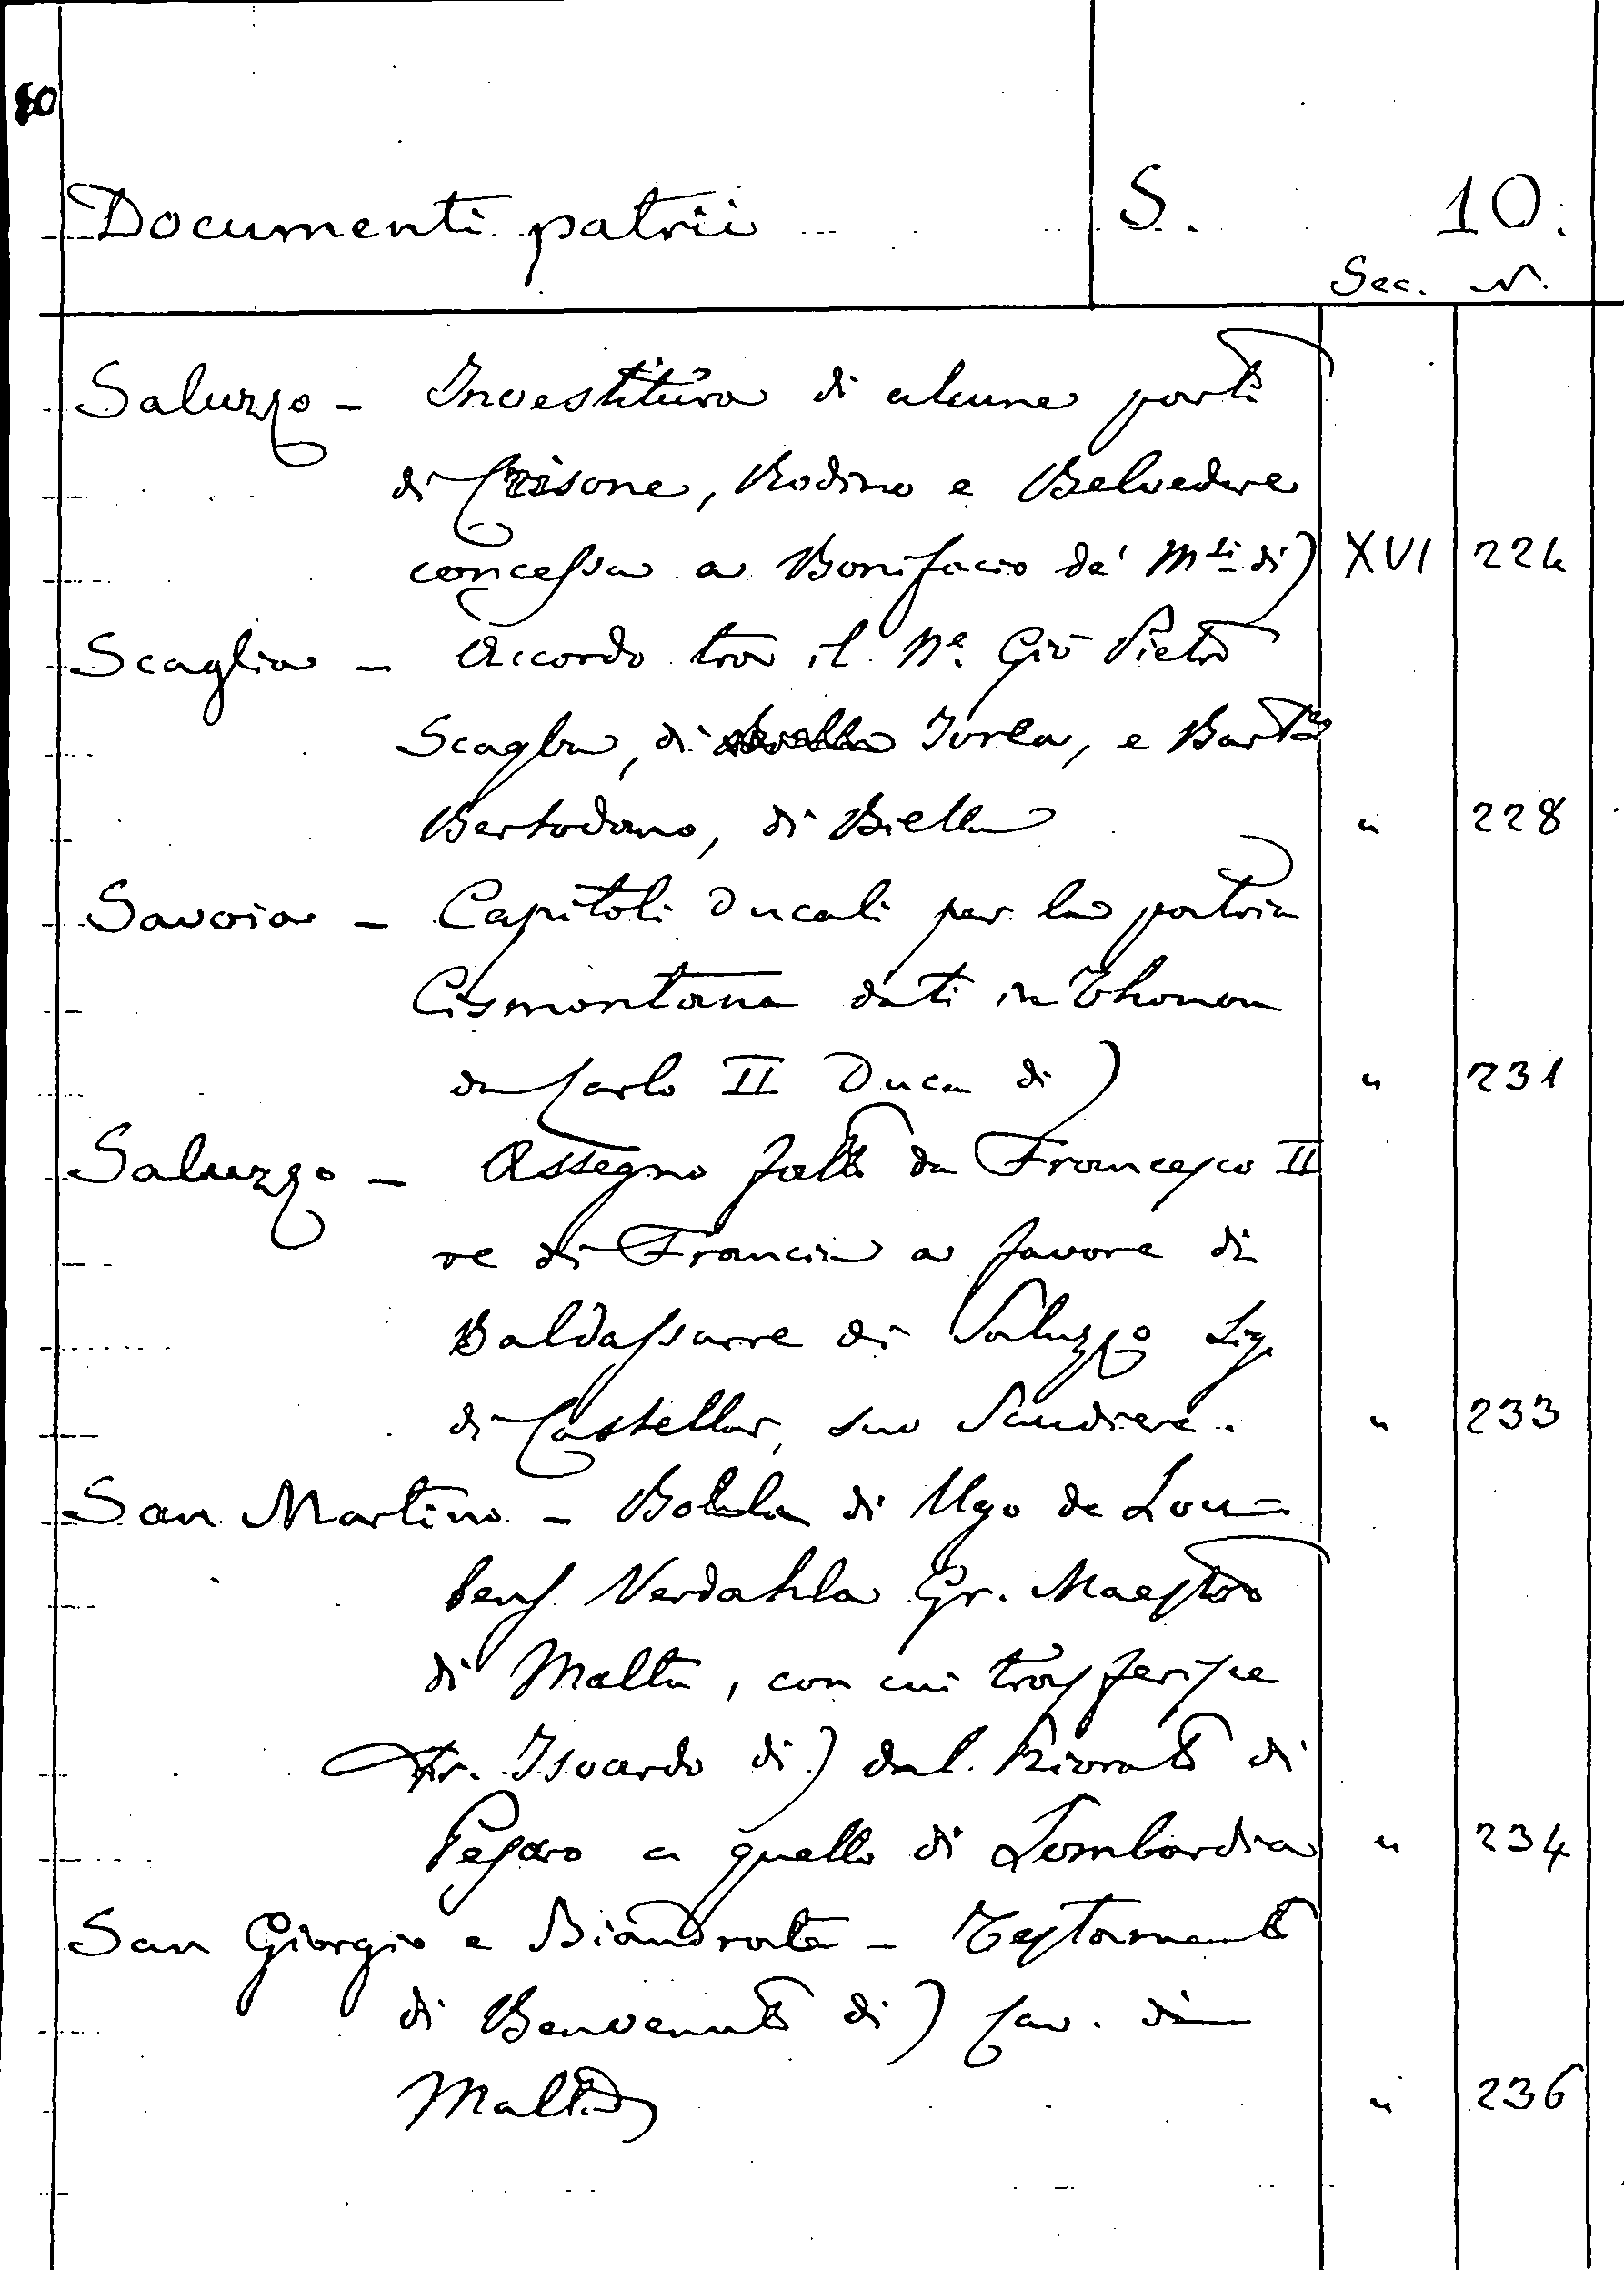 10
Documenti patrii S. 10.
Sec. N.
Saluzzo - Investitura di alcune parti
di Crisone, Rodino e Belvedere
concessa a Bonifacio de' Msi di) XVI 224
Scaglia - Accordo tra il Ne. Gio Pietro
Scaglia, di Ivrea, e Barto
Bertodano, di Biella " 228
Savoia - Capitoli Ducali per la patria
Cismontana dati in Thonon
da Carlo II Duca di) " 231
Saluzzo - Assegno fatto da Francesco II
re di Francia a favore di
Baldassarre di Saluzzo Sig.
di Castellar, suo Scudiere. " 233
San Martino - Bolla di Ugo de Lou=
bens Verdahla Gr. Maestro
di Malta, con cui trasferisce
Fr. Isoardo di) dal Priorato di
Pesaro a quello di Lombardia " 234
San Giorgio e Biandrate - Testamento
di Benvenuto di) Cav. di
Malta " 236